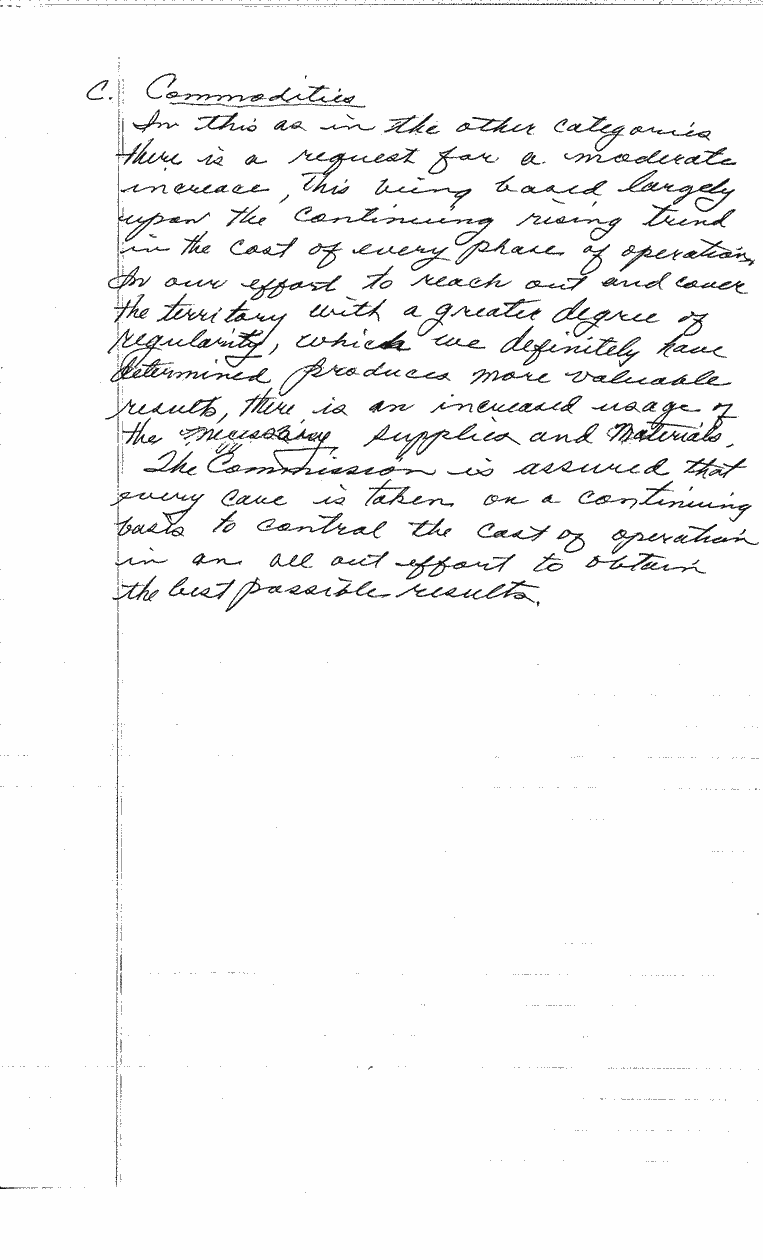 C. Commodities
In this as in the other categories
there is a request for a moderate
increase, this being based largely
upon the continuing rising trend
in the cost of every phase of operation,
In our effort to reach out and cover
the territory with a greater degree of
regularity, which we definitely have
determined produces more valuable
results, there is an increased usage of
the necessary supplies and materials.
The Commission is assured that
every care is taken on a continuing
basis to control the cost of operation
in an all out effort to obtain
the best possible results.